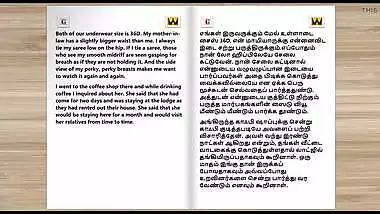 THIS
G
W
Both of our underwear size is 36D. My mother-in-
law has a slightly bigger waist than me. I always
tie my saree low on the hip. If I tie a saree, those
who see my smooth midriff seen gasping for
breath as if they are not holding it. And the side
view of my porky, perky breasts makes me want
to watch it again and again.
I went to the coffee shop there and while drinking
coffee I inquired about her. She said that she had
come for two days and was staying at the lodge as
they had rented out their house. She said that she
would be staying here for a month and would visit
her relatives from time to time.
G
W
எங்கள் இருவருக்கும் மேல் உள்ளாடை
சைஸ் 36D. என் மாமியாருக்கு என்னைவிட
இடை சற்று பருத்திருக்கும். எப்போதும்
நான் லோ ஹிப்பிலேயே சேலை
கட்டுவேன். நான் சேலை கட்டினால்
என்னுடைய வழுவழுப்பான இடையை
பார்ப்பவர்கள் அதை பிடிக்க கொடுத்து
வைக்கவில்லையே என ஏக்க பெரு
மூச்சுடன் செல்வதைப் பார்த்துள்ளேன்.
அத்துடன் என்னுடைய குத்திட்டு நிற்கும்
பருத்த மார்பகங்களின் சைடு வியூ
மீண்டும் மீண்டும் பார்க்க தூண்டும்.
அங்கிருந்த காஃபி ஷாப்புக்கு சென்று
காஃபி குடித்தபடியே அவளைப் பற்றி
விசாரித்தேன். அவள் வந்து இரண்டு
நாட்கள் ஆகிறது என்றும், தங்கள் வீட்டை
வாடகைக்கு கொடுத்துள்ளதால் லாட்ஜில்
தங்கியிருப்பதாகவும் கூறினாள். ஒரு
மாதம் இங்கு தான் இருக்கப்
போவதாகவும் அவ்வப்போது
உறவினர்களை சென்று பார்த்து வர
வேண்டும் எனவும் கூறினாள்.